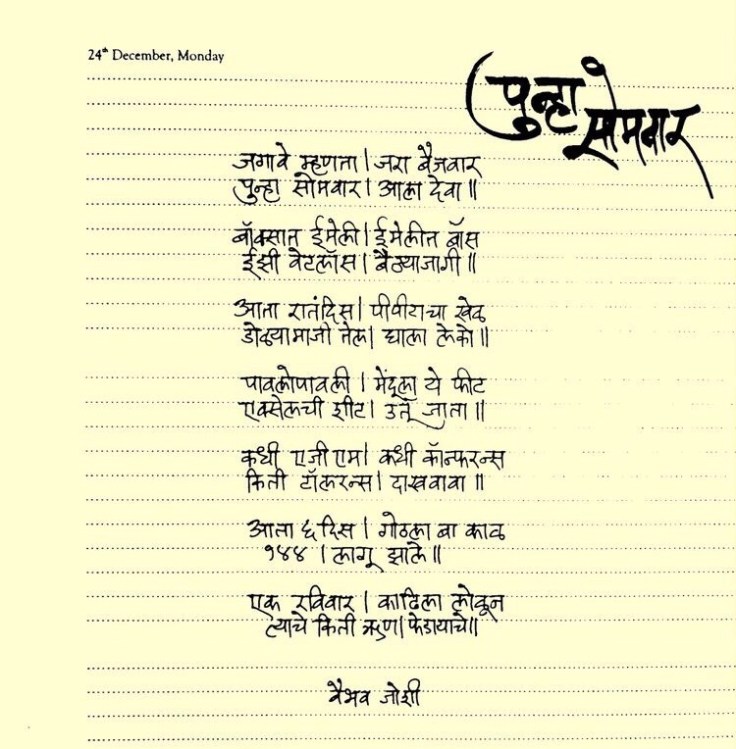 24th December, Monday
पुन्हा
सोमवार
जगावे म्हणता | जरा बैजवार
पुन्हा सोमवार | आला देवा ||
बॉक्सात ईमेली | ईमेलीत बॉस
ईझी वेटलॉस | बैठ्याजागी ||
आता रातंदिस | पीपीटाचा खेळ
डोळ्यामाजी तेल | घाला लेको ||
पावलोपावली | मेंदूला ये फीट
एक्सेलची शीट | उतू जाता ||
कधी एजीएम | कधी कॉन्फरन्स
किती टॉलरन्स | दाखवावा ||
आता ६ दिस | गोठला बा काळ
१४४ | लागू झाले ||
एक रविवार | काढिला लोटून
त्याचे किती ऋण | फेडायाचे ||
वैभव जोशी